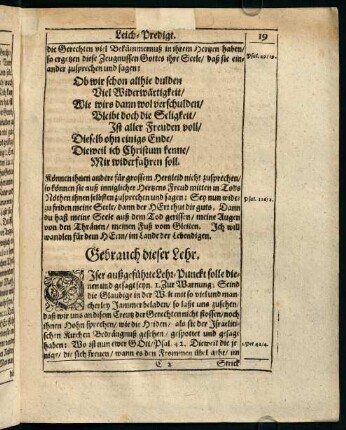 Leich-Predigt. 19
die Gerechten viel Bekümmernuß in ihrem Hertzen haben/
so ergetzen diese Zeugnussen Gottes ihre Seele/ daß sie ein-
ander zusprechen und sagen:
Ob wir schon allhie dulden
Viel Widerwärtigkeit/
Wie wirs dann wol verschulden/
Bleibt doch die Seligkeit/
Ist aller Freuden voll/
Dieselb ohn einigs Ende/
Dieweil ich Christum kenne/
Mir widerfahren soll.
Können ihnen andere für grossem Hertzleid nicht zusprechen/
so können sie auß inniglicher Hertzens Freud mitten in Tods
Nöthen ihnen selbsten zusprechen und sagen: Sey nun wider
zu frieden meine Seele/ dann der HErr thut dir guts. Dann
du hast meine Seele auß dem Tod gerissen/ meine Augen
von den Thränen/ meinen Fuß vom Gleiten. Ich will
wandlen für dem HErrn/ im Lande der Lebendigen.
Gebrauch dieser Lehr.
Diser außgeführte Lehr-Punckt solle die-
nen und gesagt seyn. 1. Zur Warnung: Seind
die Glaubige in der Welt mit so viel und man-
cherley Jammer beladen/ so laßt uns zusehen/
daß wir uns an disem Creutz der Gerechten nicht stossen/ noch
ihnen Hohn sprechen/ wie die Heiden/ also sie der Israeliti-
schen Kirchen Bedrängnuß gesehen/ gespottet und gesagt
haben: Wo ist nun ewer GOtt/ Psal. 42. Dieweil die je-
nige/ die sich frewen/ wann es den Frommen übel geht/ im
C 2 Strick